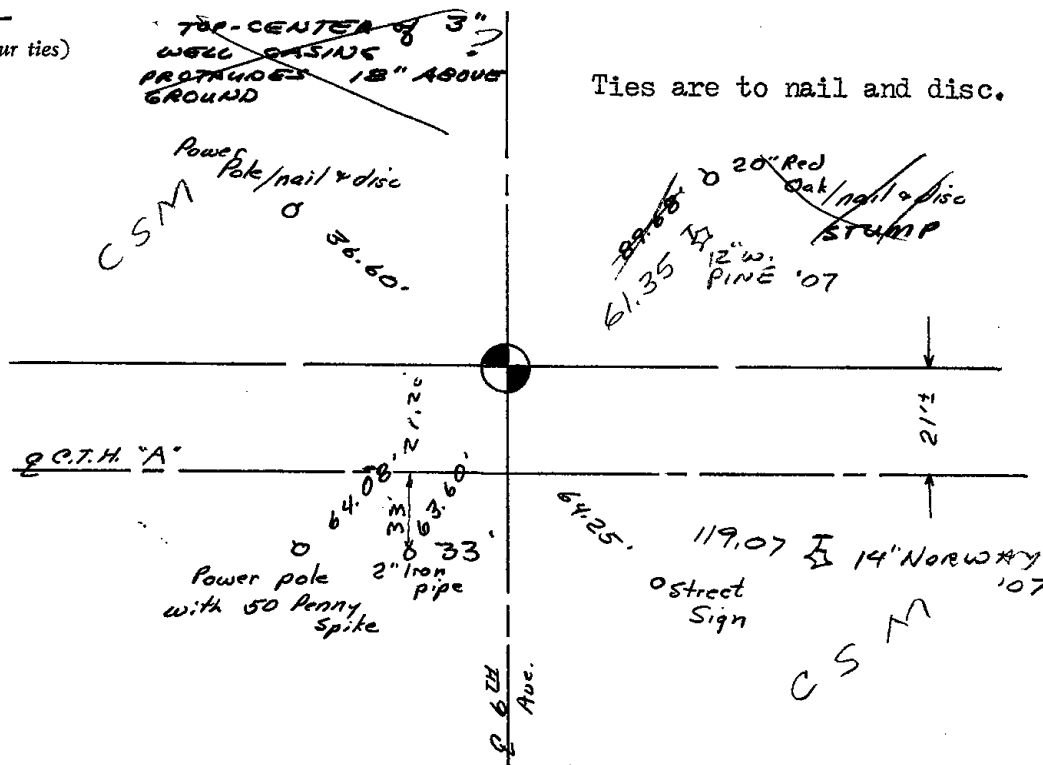 ur ties)
TOP-CENTER of 3"
WELL CASING ?
PROTRUDES 18" ABOVE
GROUND
Ties are to nail and disc.
Power
Pole/nail & disc
CSM
36.60'
20" Red
Oak/nail & disc
STUMP
89.68'
61.35
12" W.
PINE '07
21.20'
21'±
℄ C.T.H. "A"
64.08'
33'
63.60'
33'
2" Iron
pipe
Power pole
with 50 Penny
Spike
64.25'
119.07
14" NORWAY
'07
Street
Sign
CSM
℄ 6TH
Ave.